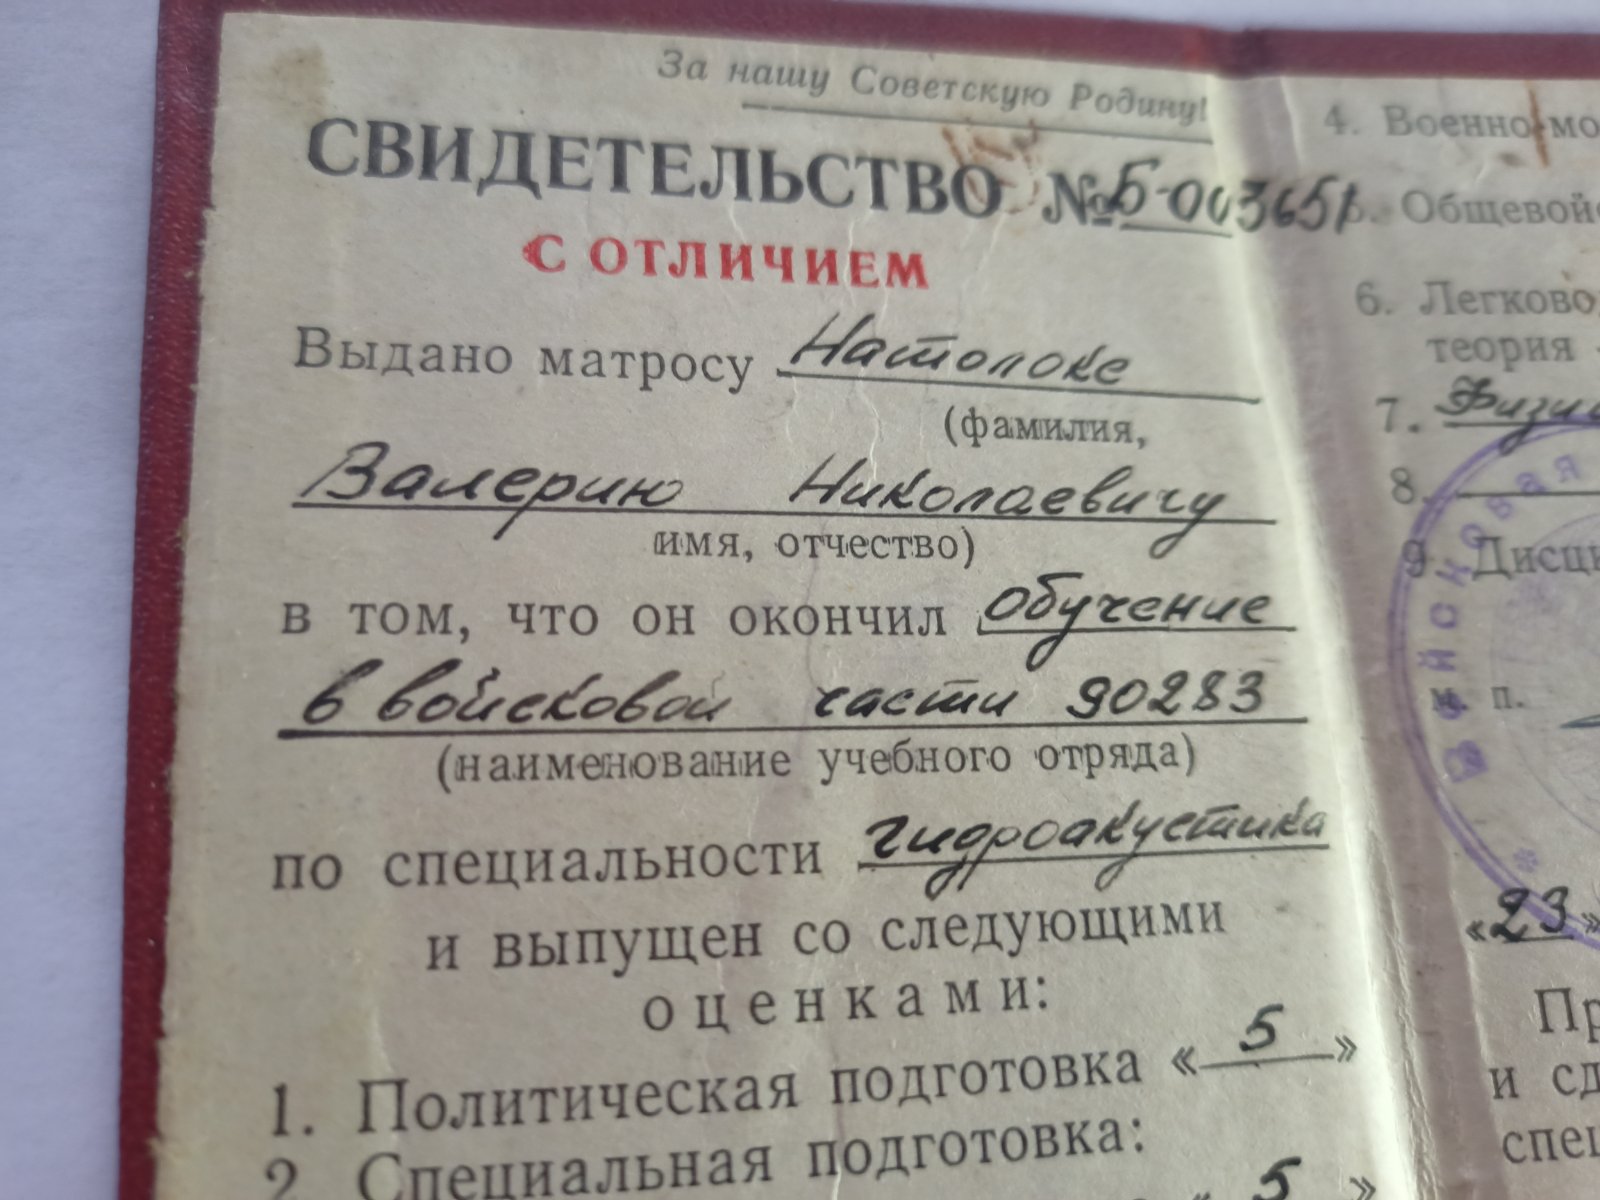 За нашу Советскую Родину!
СВИДЕТЕЛЬСТВО № Б-003651
С ОТЛИЧИЕМ
Выдано матросу Натолоке
(фамилия,
Валерию Николаевичу
имя, отчество)
в том, что он окончил обучение
в войсковой части 90283
(наименование учебного отряда)
по специальности гидроакустика
и выпущен со следующими
оценками:
1. Политическая подготовка «5»
2. Специальная подготовка:
« 5 »
4. Военно-мо
5. Общевой
6. Легково
теория
7. Физи
8.
9. Дисци
м. п.
Войсковая
«23»
Пр
и сд
спец